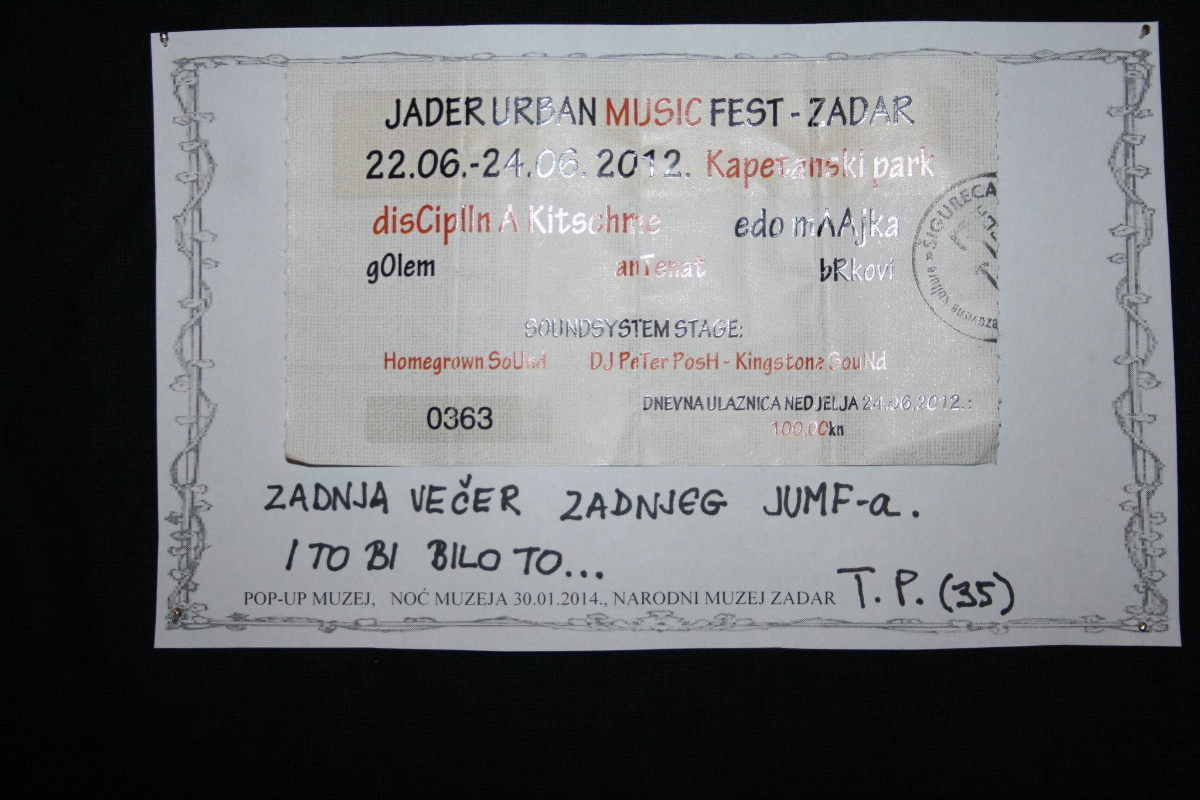 JADER URBAN MUSIC FEST - ZADAR
22.06.-24.06. 2012. Kapetanski park
disCiplIn A Kitschme edo mAAjka
gOlem anTenat bRkovi
ŠIGURECA
SOUNDSYSTEM STAGE:
Homegrown SoUnd DJ PeTer PosH - Kingstone SouNd
0363
DNEVNA ULAZNICA NEDJELJA 24.06.2012.:
100,00kn
ZADNJA VEČER ZADNJEG JUMF-a.
I TO BI BILO TO...
POP-UP MUZEJ, NOĆ MUZEJA 30.01.2014., NARODNI MUZEJ ZADAR
T.P. (35)